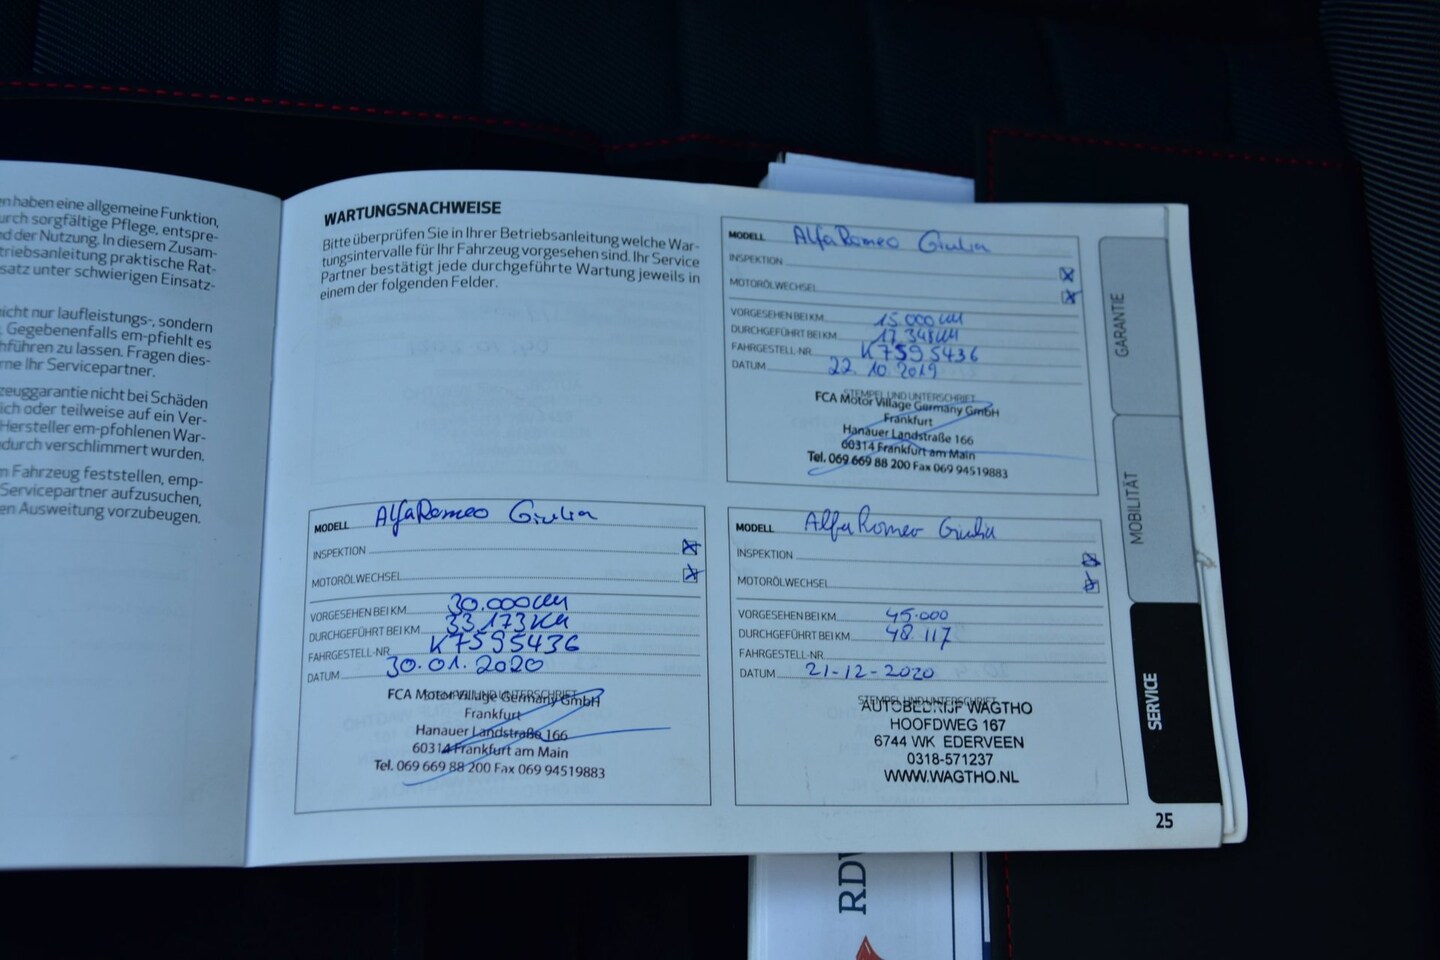 en haben eine allgemeine Funktion,
urch sorgfältige Pflege, entspre-
nd der Nutzung. In diesem Zusam-
triebsanleitung praktische Rat-
satz unter schwierigen Einsatz-
nicht nur laufleistungs-, sondern
. Gegebenenfalls em-pfiehlt es
hführen zu lassen. Fragen dies-
rne Ihr Servicepartner.
zeuggarantie nicht bei Schäden
ich oder teilweise auf ein Ver-
Hersteller em-pfohlenen War-
durch verschlimmert wurden.
m Fahrzeug feststellen, emp-
Servicepartner aufzusuchen,
en Ausweitung vorzubeugen.
WARTUNGSNACHWEISE
Bitte überprüfen Sie in Ihrer Betriebsanleitung welche War-
tungsintervalle für Ihr Fahrzeug vorgesehen sind. Ihr Service
Partner bestätigt jede durchgeführte Wartung jeweils in
einem der folgenden Felder.
MODELL Alfa Romeo Giulia
INSPEKTION
MOTORÖLWECHSEL
VORGESEHEN BEI KM 15.000 km
DURCHGEFÜHRT BEI KM 17.348 km
FAHRGESTELL-NR. K7595436
DATUM 22.10.2019
STEMPEL UND UNTERSCHRIFT
FCA Motor Village Germany GmbH
Frankfurt
Hanauer Landstraße 166
60314 Frankfurt am Main
Tel. 069 669 88 200 Fax 069 94519883
MODELL Alfa Romeo Giulia
INSPEKTION
MOTORÖLWECHSEL
VORGESEHEN BEI KM 30.000 km
DURCHGEFÜHRT BEI KM 33.173 km
FAHRGESTELL-NR. K7595436
DATUM 30.01.2020
STEMPEL UND UNTERSCHRIFT
FCA Motor Village Germany GmbH
Frankfurt
Hanauer Landstraße 166
60314 Frankfurt am Main
Tel. 069 669 88 200 Fax 069 94519883
MODELL Alfa Romeo Giulia
INSPEKTION
MOTORÖLWECHSEL
VORGESEHEN BEI KM 45.000
DURCHGEFÜHRT BEI KM 48.117
FAHRGESTELL-NR.
DATUM 21-12-2020
STEMPEL UND UNTERSCHRIFT
AUTOBEDRIJF WAGTHO
HOOFDWEG 167
6744 WK EDERVEEN
0318-571237
WWW.WAGTHO.NL
GARANTIE
MOBILITÄT
SERVICE
25
RDW